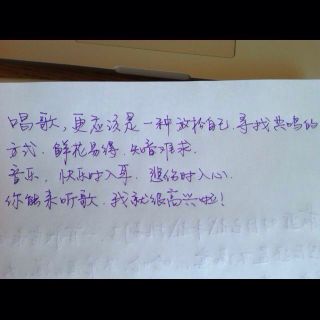 唱歌,更应该是一种放松自己.寻找共鸣的
方式.鲜花易得.知音难求.
音乐,快乐时入耳.悲伤时入心.
你能来听歌.我就很高兴啦!